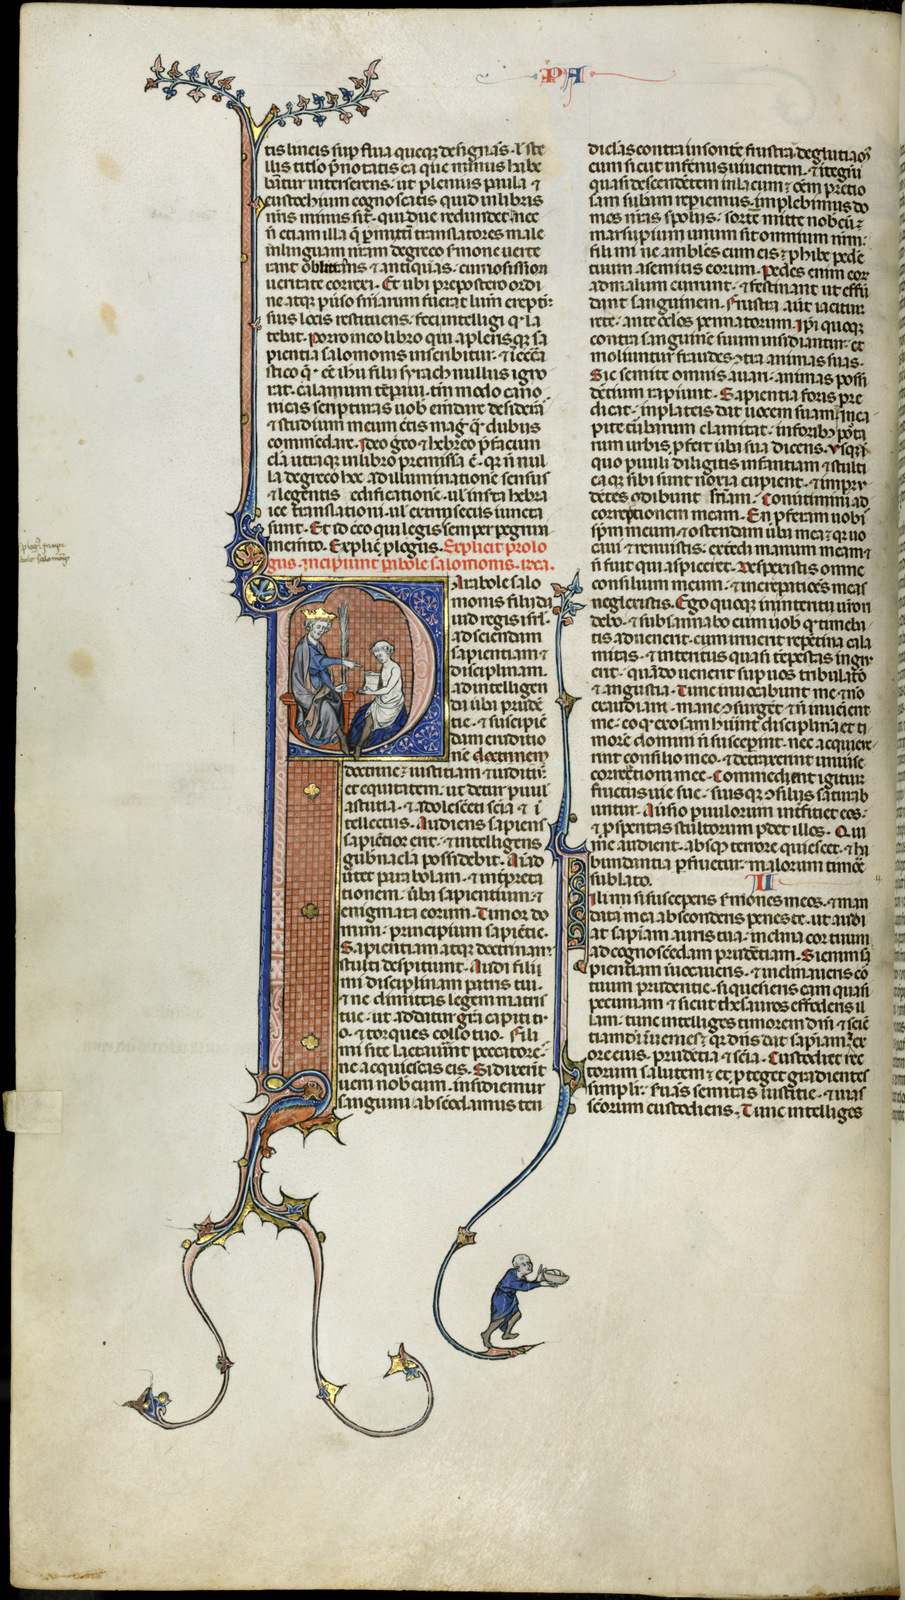 PA
tis lineis sup flua queque designans · l' ste
llis titlo p̄notatis ea que minus habe
bantur interserens · ut plenius paula ⁊
eustochium cognoscatis quid in libris
nr̄is minus sit · quidue redundet · Nec
n̄ etiam illa q̄ p̄mixtū translatores male
in linguam nr̄am de greco s̓mone uerte
rant oblitt̓ans ⁊ antiquans · curiosission
ueritate correxi · Et ubi prepostero ordi
ne atq; p̓uso snīarum fuerat lum̄ ereptū
suis locis restituens · feci intelligi q̓ la
tebat · Porro in eo libro qui a pleris q; sa
pientia salomonis inscribitur · ⁊ ī ecc̄ia
stico q̄ · ēe ih̄u filii syrach nullus igno
rat · calamum tēp̄aui · tm̄ modo cano
nicas scripturas uob̄ em̄dare desiderās
⁊ studium meum c̄tis mag̓ q̄ dubiis
commēdare · Ideo greco ⁊ hebreo p̄facium
cla utraq; in libro premissa ē · q̓ n̄ nul
la de greco hec ad illuminatione sensus
⁊ legentis edificatione · ul' insta hebra
ice translationi · ul' extrinsecus iuncta
sunt · Et id c̓co qui legis semper pegrini
memēto · Explic̄ plogus · Explicit prolo
gus · incipiunt pabole salomonis · rrca.
Parabole salo
monis filii da
uid regis isrl̓ ·
ad sciendam
sapientiam ⁊
disciplinam ·
ad intelligen
da uba prudē
tie · ⁊ suscipiē
dam eruditio
nē doctrinem
doctrine · iustitiam ⁊ iuditiū
et equitatem · ut detur p̓uul'
astutia · ⁊ adolescēti scīa ⁊ ī
tellectus · Audiens sapiens
sapiētior erit · ⁊ intelligens
gub̄nacla possidebit · Aīad
u̓tet parabolam · ⁊ int̓preta
tionem · ūba sapientium · ⁊
enigmata eorum · Timor do
mini · principium sapiētie ·
Sapientiam atq; doctrinam
stulti despiciunt · Audi fili
mi disciplinam patris tui ·
⁊ ne dimittas legem matris
tue · ut addatur gr̄a capiti t̄i
o · ⁊ torques collo tuo · Fili
mi si te lactauint peccatores
ne acquiescas eis · Si dixerint
ueni nob̄cum · insidiemur
sanguini · abscōdamus ten
diclas contra insontē frustra · deglutiam̓
eum sicut infernus uiuentem · ⁊ itegrū
quasi descendētem in lacum ⁊ oēm pretio
sam subam repiemus · implebimus do
mos nr̄as spoliis · sortē mitte nob̄cū ⁊
marsupium unum sit omnium nrm̄ ·
fili mi ne ambles cum eis · phibe pedē
tuum a semitis eorum · Pedes enim eor̄
ad malum currunt · ⁊ festinant ut effū
dant sanguinem · Frustra aut̄ iacitur
rete · ante oc̄los pennatorum · Ip̄i quoq;
contra sanguinē suum insidiantur · et
moliuntur fraudes ꝯtra animas suas ·
Sic semite omnis auari · animas possi
dētium rapiunt · Sapientia foris pre
dicat · in plateis dat uocem suam · in ca
pite tūbarum clamitat · in foribꝫ porta
rum urbis p̓fert ūba sua dicens · Vsq;q̓
quo p̓uuli diligitis infantiam ⁊ stulti
ea q̄ sibi sunt noxia cupient · ⁊ impru
dētes odibunt scīam · Conūtimini ad
correptionem meam · En p̓feram uobis
spm̄ meum · ⁊ ostendam ūba mea · q̓r uo
caui ⁊ renuistis · extēdi manum meam ⁊
n̄ fuit qui aspiceret · Despexistis omne
consilium meum · ⁊ increpatiōes meas
neglexistis · Ego quoq; in interitu ur̄o ri
debo · ⁊ subsannabo cum uob̄ q̄ timeba
tis aduenerit · cum irruerit repētina cala
mitas · ⁊ interitus quasi tēpestas ingru
erit · quādo uenerit sup uos tribulatō
⁊ angustia · Tunc inuocabunt me ⁊ nō
exaudiam · mane ꝯsurgēt ⁊ n̄ inuenient
me · eo q̓ exosam habuīnt disciplina et ti
morē domini n̄ susceperint · nec acquieue
runt consilio meo · ⁊ detraxerint uniuse
correptioni mee · Commedent igitur
fructus uie sue · suisq; ꝯsiliis saturab
untur · Au̓sio p̓uulorum int̓ficiet eos ·
⁊ p̓speritas stultorum p̓det illos · Qui
me audierit · absq; terrore quiescet · ⁊ ha
bundantia p̓fruetur · malorum timore
sublato.
II
Fili mi si susceperis s̓mones meos · ⁊ man
data mea absconderis penes te · ut audi
at sapiam auris tua · inclina cor tuum
ad cognoscēdam prudētiam · Si enim sa
pientiam iuocaueris · ⁊ inclinaueris cor
tuum prudentie · si quesieris eam quasi
pecuniam ⁊ sicut thesauros effoderis il
lam · tunc intelliges timorem dn̄i ⁊ sciē
tiam di inuenies · q̓r dn̄s dat sapiam ⁊ ex
ore eius · prudētia ⁊ scīa · Custodiet rec
torum salutem · ⁊ et̓ p̓teget gradientes
simplic̄ · s̓uās semitas iustitie · ⁊ uias
sc̄orum custodiens · Tunc intelliges